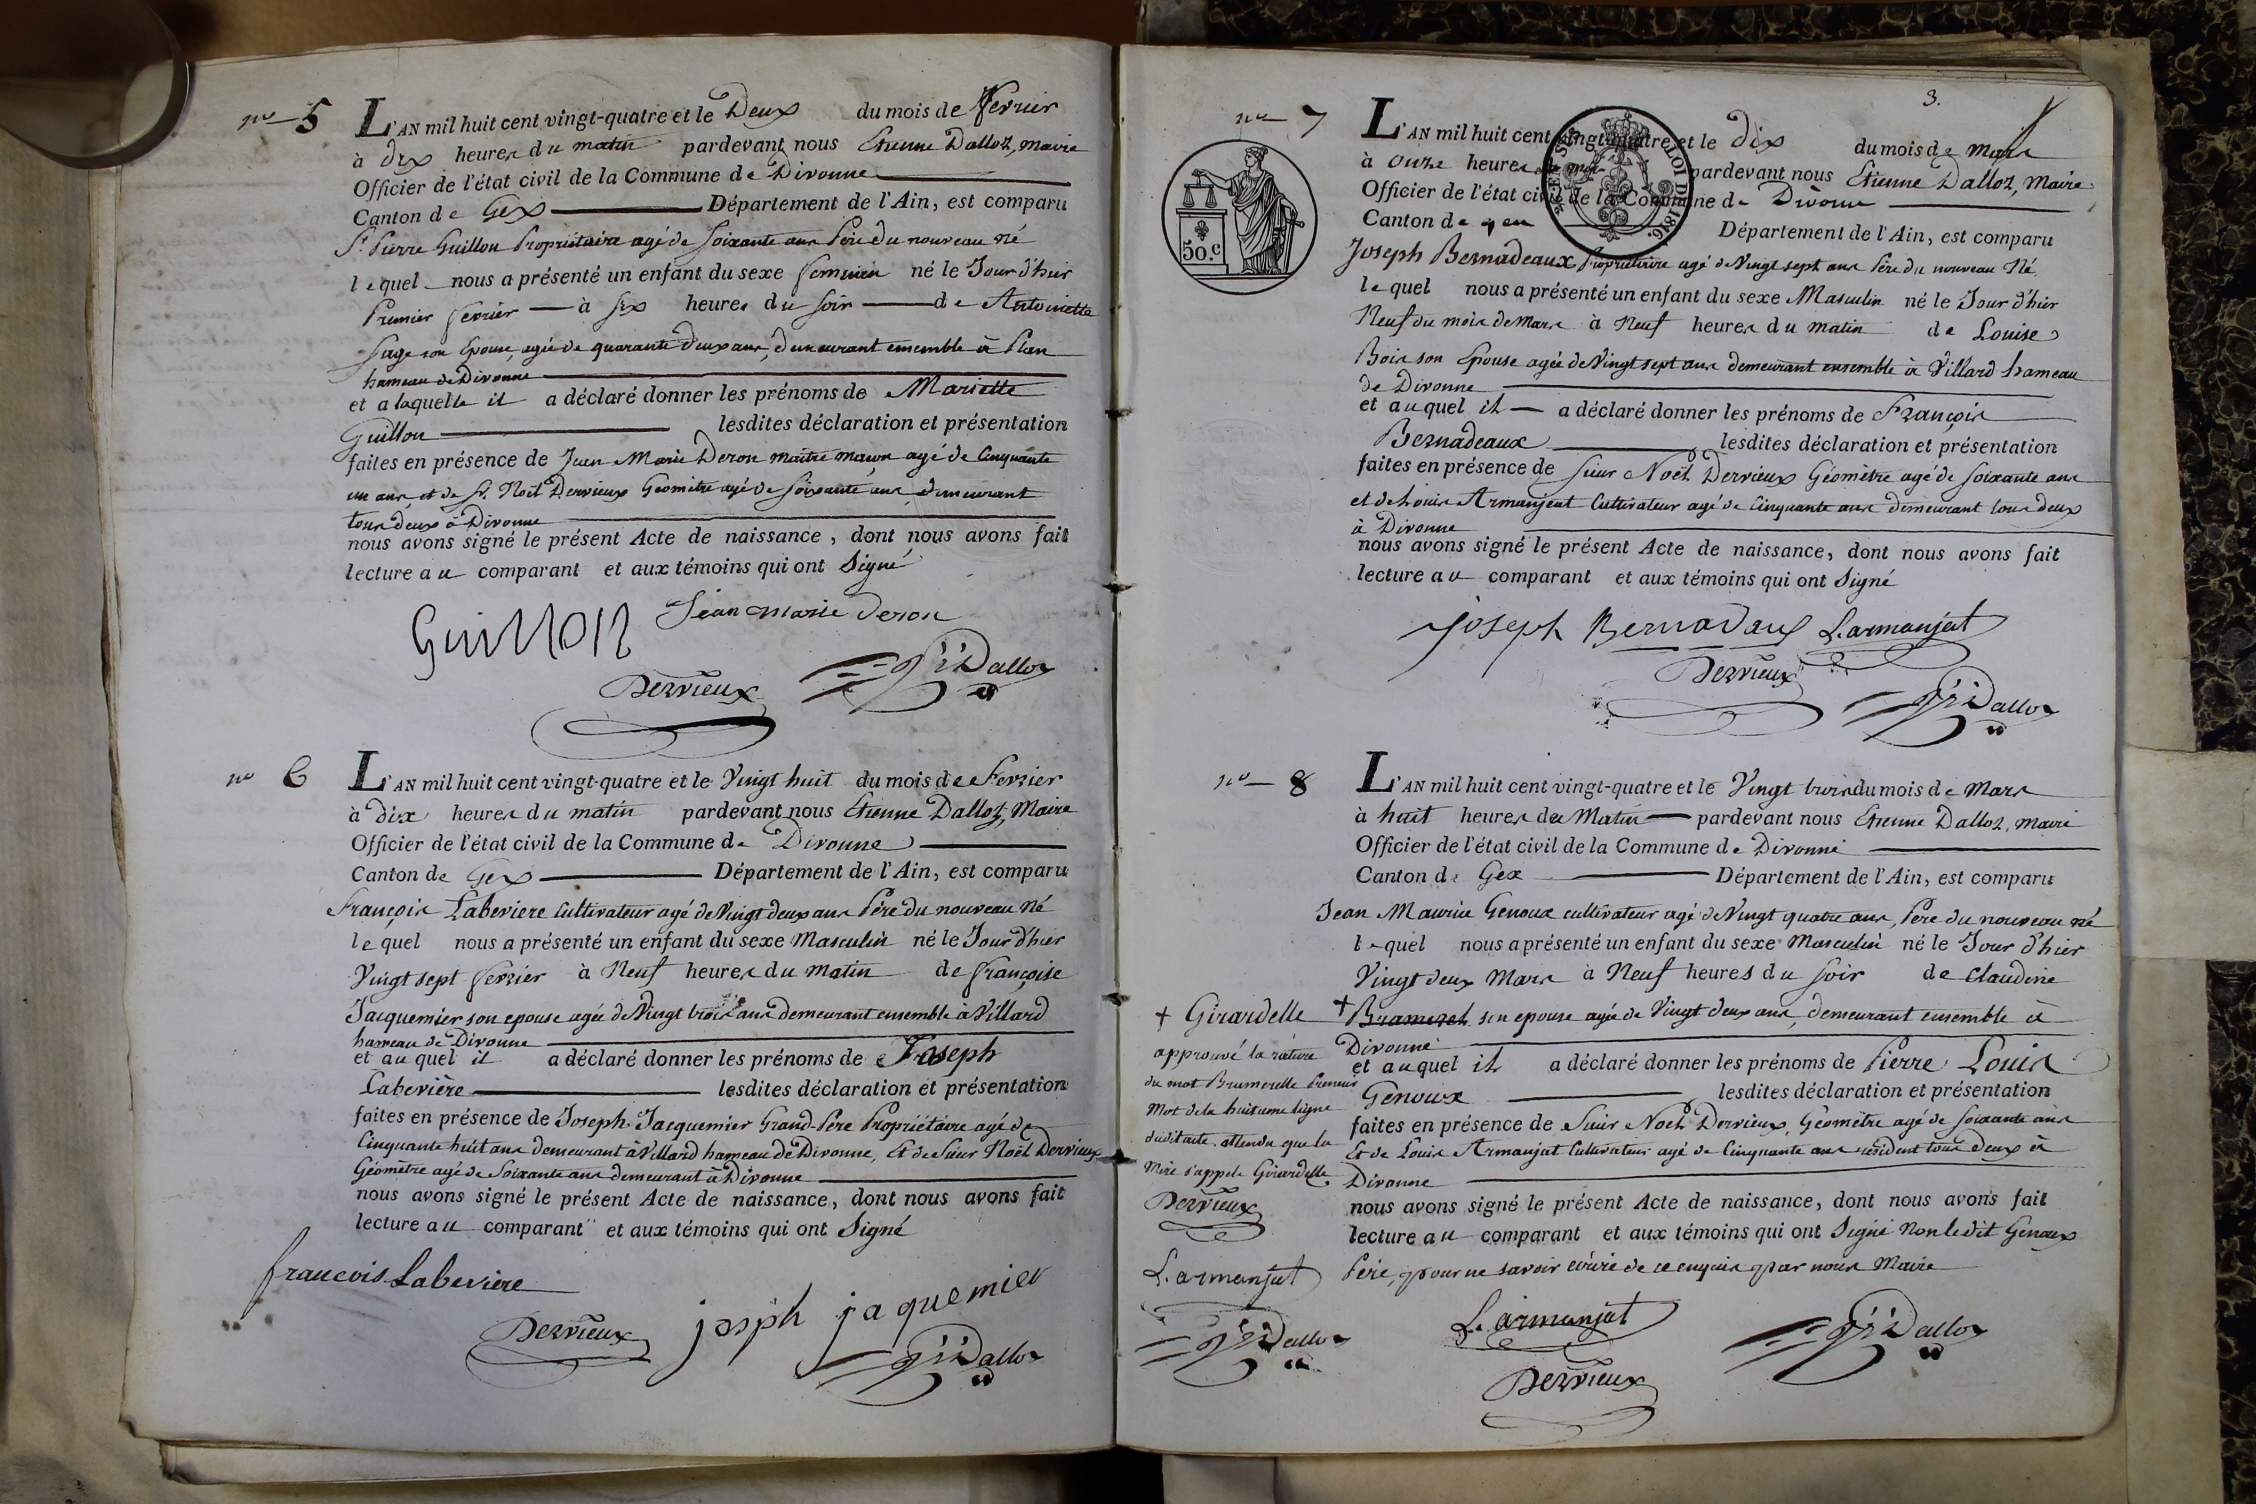 no 5
L'AN mil huit cent vingt-quatre et le Deux du mois de fevrier
à dix heures du matin pardevant nous Etienne Dalloz, maire
Officier de l'état civil de la Commune de Divonne
Canton de Gex Département de l'Ain, est comparu
Sr. Pierre Guillon Propriétaire agé de soixante ans Père du nouveau né
lequel nous a présenté un enfant du sexe feminin né le Jour d'hier
Premier fevrier à six heures du soir de Antoinette
Sage son Epouse, agée de quarante deux ans, demeurant ensemble à Plan
hameau de Divonne
et a laquelle il a déclaré donner les prénoms de Mariette
Guillon lesdites déclaration et présentation
faites en présence de Jean Marie Deron maître maçon agé de Cinquante
un ans, et de Sr. Noël Dervieux Géomètre agé de soixante ans demeurant
tous deux à Divonne
nous avons signé le présent Acte de naissance, dont nous avons fait
lecture au comparant et aux témoins qui ont Signé
Guillon Jean marie deron
Dervieux Dalloz
no 6
L'AN mil huit cent vingt-quatre et le Vingt huit du mois de Fevrier
à dix heures du matin pardevant nous Etienne Dalloz, Maire
Officier de l'état civil de la Commune de Divonne
Canton de Gex Département de l'Ain, est comparu
François Laberiere Cultivateur agé de Vingt deux ans Père du nouveau Né
lequel nous a présenté un enfant du sexe Masculin né le Jour d'hier
Vingt sept fevrier à Neuf heures du matin de françoise
Jacquemier son epouse agée de Vingt trois ans demeurant ensemble à Villard
hameau de Divonne
et au quel il a déclaré donner les prénoms de Joseph
Laberière lesdites déclaration et présentation
faites en présence de Joseph Jacquemier Grand-Père Propriétaire agé de
Cinquante huit ans demeurant à Villard hameau de Divonne, Et de Sieur Noël Dervieux
Géomètre agé de Soixante ans demeurant à Divonne
nous avons signé le présent Acte de naissance, dont nous avons fait
lecture au comparant et aux témoins qui ont Signé
francois Laberiere
Dervieux joseph jaquemier
Dalloz
3.
no 7
L'AN mil huit cent vingt-quatre et le dix du mois de Mars
à onze heures du matin pardevant nous Etienne Dalloz, Maire
Officier de l'état civil de la Commune de Divonne
Canton de gex Département de l'Ain, est comparu
50.c
LOI DE 1816.
Joseph Bernadeaux Propriétaire agé de Vingt sept ans Père du nouveau Né
lequel nous a présenté un enfant du sexe Masculin né le Jour d'hier
Neuf du mois de Mars à Neuf heures du matin de Louise
Bois son Epouse agée de Vingt sept ans demeurant ensemble à Villard hameau
de Divonne
et auquel il a déclaré donner les prénoms de François
Bernadeaux lesdites déclaration et présentation
faites en présence de Sieur Noël Dervieux Géomètre agé de soixante ans
et de Louis Armanjeat Cultivateur agé de Cinquante ans demeurant tous deux
à Divonne
nous avons signé le présent Acte de naissance, dont nous avons fait
lecture au comparant et aux témoins qui ont Signé
joseph Bernadaux L. armanjat
Dervieux
Dalloz
no 8
L'AN mil huit cent vingt-quatre et le Vingt trois du mois de Mars
à huit heures du Matin pardevant nous Etienne Dalloz, maire
Officier de l'état civil de la Commune de Divonne
Canton de Gex Département de l'Ain, est comparu
Jean Maurice Genoux cultivateur agé de Vingt quatre ans, Père du nouveau né
lequel nous a présenté un enfant du sexe Masculin né le Jour d'hier
Vingt deux Mars à Neuf heures du soir de Claudine
+ Bramerel son epouse agée de Vingt deux ans, demeurant ensemble à
Divonne
et auquel il a déclaré donner les prénoms de Pierre Louis
Genoux lesdites déclaration et présentation
faites en présence de Sieur Noël Dervieux, Géomètre agé de soixante ans
Et de Louis Armanjat Cultivateur agé de Cinquante ans résident tous deux à
Divonne
nous avons signé le présent Acte de naissance, dont nous avons fait
lecture au comparant et aux témoins qui ont Signé Non ledit Genoux
Père, pour ne savoir écrire de ce enquis par nous Maire
L. armanjat Dalloz
Dervieux
+ Girardelle
approuvé la rature
du mot Bramerelle Premier
Mot de la huitieme ligne
dudit acte, attendu que la
Mère s'appele Girardelle
Dervieux
L. armanjat
Dalloz